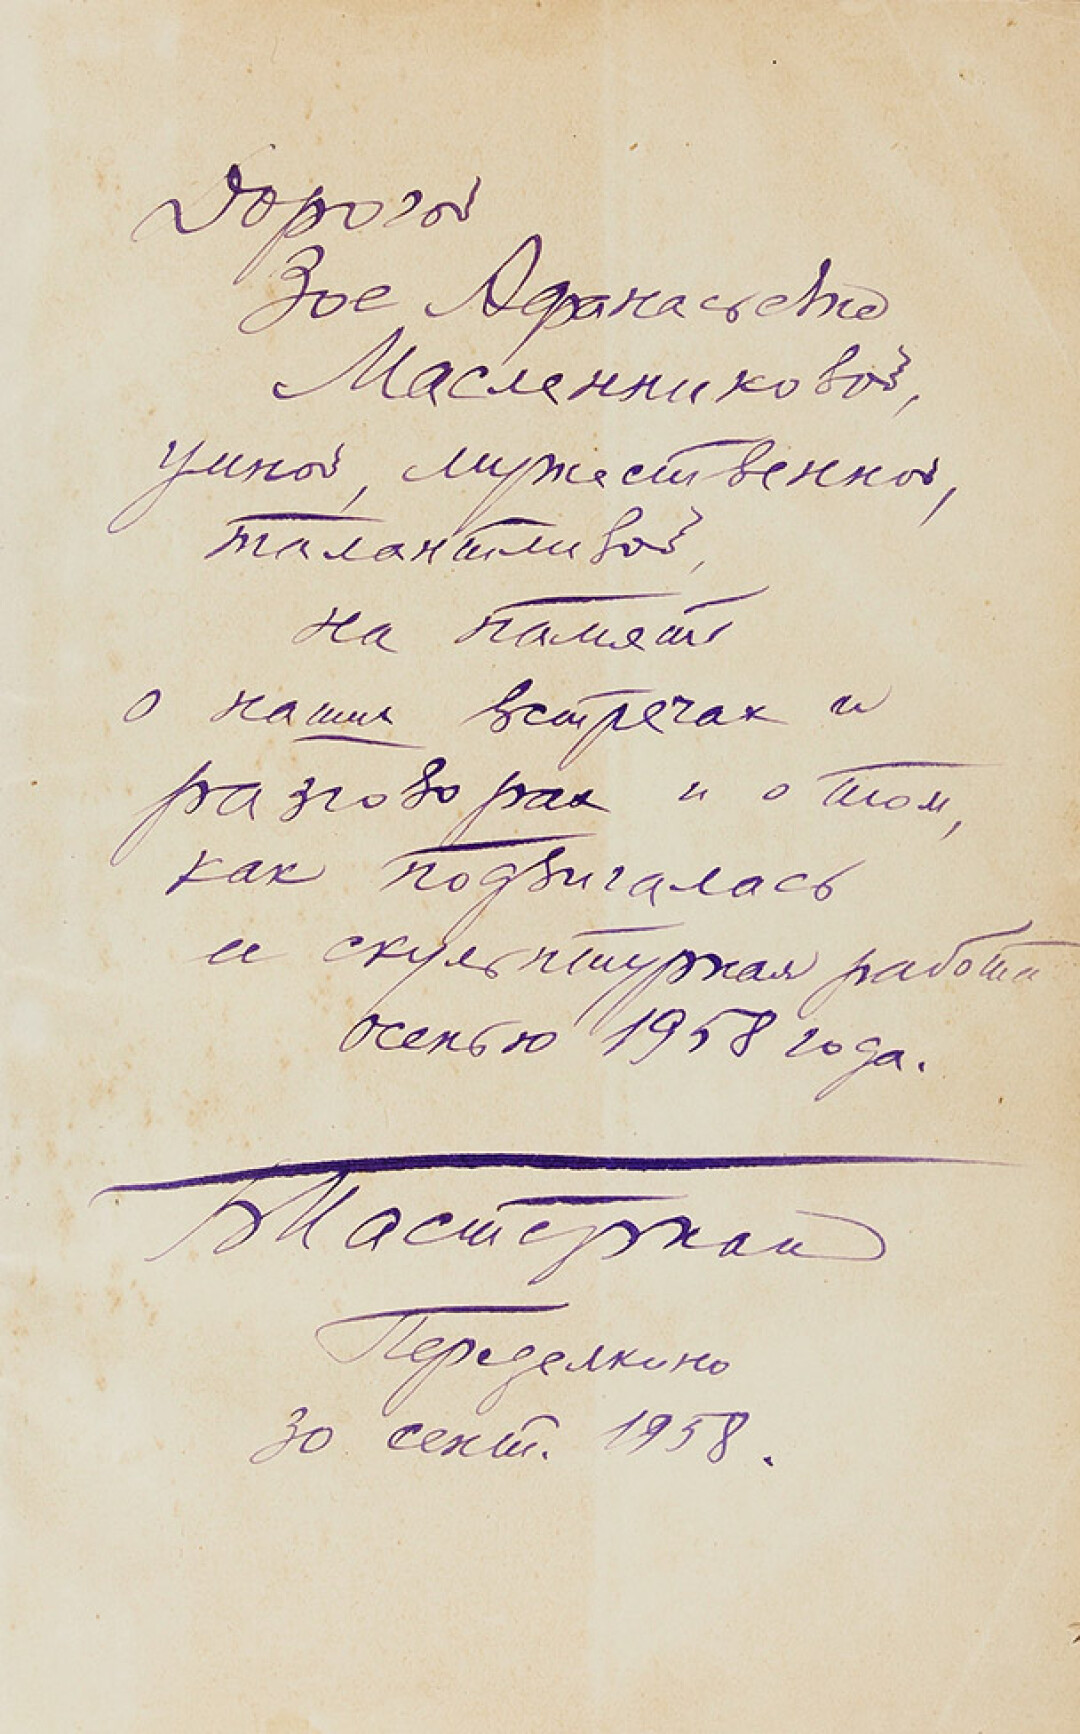 Дорогой
Зое Афанасьевне
Масленниковой,
умной, мужественной,
талантливой,
на память
о наших встречах и
разговорах и о том,
как подвигалась
и скульптурная работа
осенью 1958 года.
БПастернак
Переделкино
30 сент. 1958.